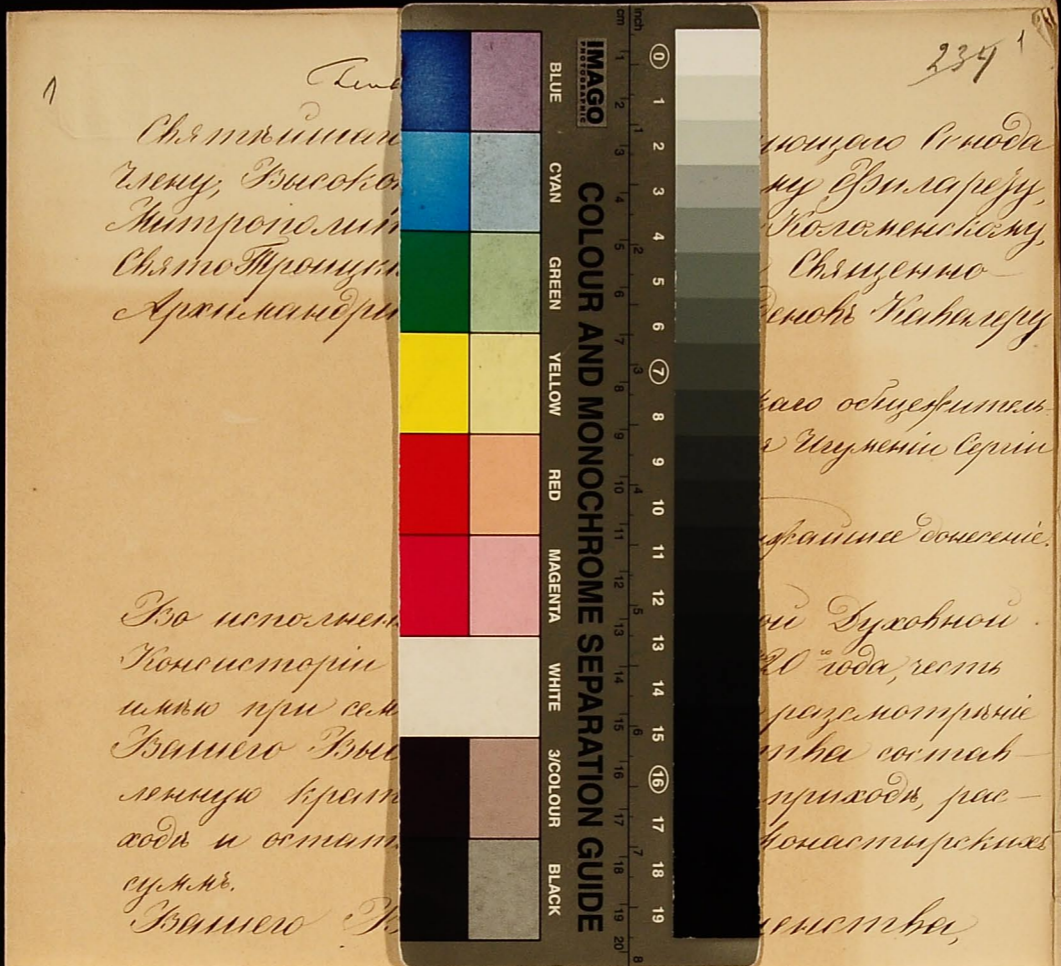 1
234
1
Святѣйшаг ующаго Сѵнода
Члену, Высоко ну Филарету,
Митрополит Коломенскому,
СвятоТроицк Священно-
Архимандри деновъ Кавалеру
каго общежитель-
я Игуменіи Сергіи
жайшее донесеніе.
Во исполнен ой Духовной
Консисторіи 20 го года, честь
имѣю при сем разсмотрѣніе
Вашего Выс тва состав-
ленную крат приходѣ, рас-
ходѣ и остат монастырскихъ
суммъ.
Вашего В енства,
IMAGO
PHOTOGRAPHIC
COLOUR AND MONOCHROME SEPARATION GUIDE
cm
inch
BLUE
CYAN
GREEN
YELLOW
RED
MAGENTA
WHITE
3/COLOUR
BLACK
1
2
3
4
5
6
7
8
9
10
11
12
13
14
15
16
17
18
19
20
1
2
3
4
5
6
7
8
0
1
2
3
4
5
6
7
8
9
10
11
12
13
14
15
16
17
18
19